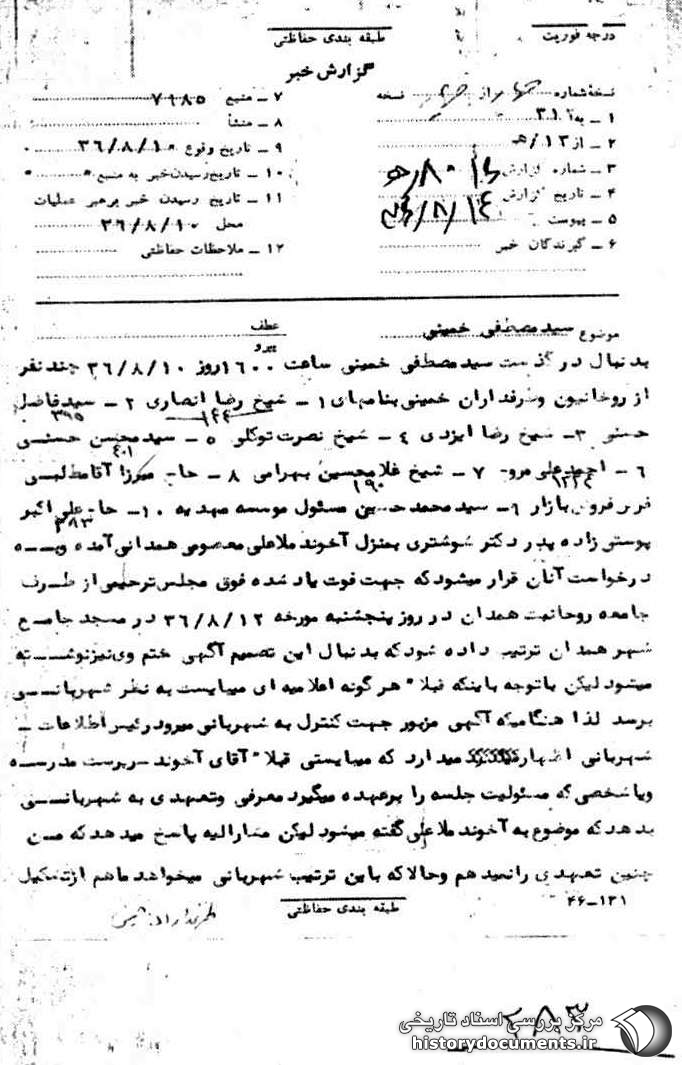 درجه فوریت
طبقه بندی حفاظتی
گزارش خبر
نسخه شماره از نسخه
۱ ـ به ۳۱۲
۲ ـ از ۱۳/هـ
۳ ـ شماره گزارش
۴ ـ تاریخ گزارش ۳۶/۸/۱۴
۵ ـ پیوست
۶ ـ گیرندگان خبر
۷ ـ منبع ۷۹۸۵
۸ ـ منشأ
۹ ـ تاریخ وقوع ۳۶/۸/۱۰
۱۰ ـ تاریخ رسیدن خبر به منبع "
۱۱ ـ تاریخ رسیدن خبر برهبر عملیات
محل ۳۶/۸/۱۰
۱۲ ـ ملاحظات حفاظتی
موضوع سید مصطفی خمینی
عطف
پیرو
بدنبال درگذشت سید مصطفی خمینی ساعت ۱۶۰۰ روز ۳۶/۸/۱۰ چند نفر
از روحانیون وطرفداران خمینی بنامهای ۱ ـ شیخ رضا انصاری ۲ ـ سید فاضل
۱۴۴ ۳۹۵
حسنی ۳ـ شیخ رضا ایزدی ۴ ـ شیخ نصرت توکلی ۵ ـ سید محسن حسنی
۴۰۱
۶ ـ احمد علی مروـ ۷ ـ شیخ غلامحسین بهرامی ۸ ـ حاج میرزا آقا مطلبی
۱۹۰
فروش بازار ۹ ـ سید محمد حسین مسئول موسسه مهدیه ۱۰ ـ حاج علی اکبر
۳۸۳
پوستی زاده پدر دکتر شوشتری بمنزل آخوند ملاعلی معصومی همدانی آمده وبـــه
درخواست آنان قرار میشود که جهت فوت یاد شده فوق مجلس ترحیمی از طـرف
جامعه روحانیت همدان در روز پنجشنبه مورخه ۳۶/۸/۱۲ در مسجد جامـع
شهر همدان ترتیب داده شود که بدنبال این تصمیم آگهی ختم وی نیز نوشـــته
میشود لیکن با توجه باینکه قبلا" هرگونه اعلامیه ای میبایست به نظر شهربانــی
برسد لذا هنگامیکه آگهی مزبور جهت کنترل به شهربانی میرود رئیس اطلاعات ـ
شهربانی اظهار میدارد که میبایستی قبلا" آقای آخوند سرپرست مدرســه
ویا شخصی که مسئولیت جلسه را برعهده میگیرد معرفی وتعهدی به شهربانــی
بدهد که موضوع به آخوند ملاعلی گفته میشود لیکن مشارالیه پاسخ میدهد که مـن
چنین تعهدی را نمیدهم وحالا که باین ترتیب شهربانی میخواهد ما هم از تشکیل
۴۶-۱۳۱
طبقه بندی حفاظتی
۲۸۳
مرکز بررسی اسناد تاریخی
historydocuments.ir